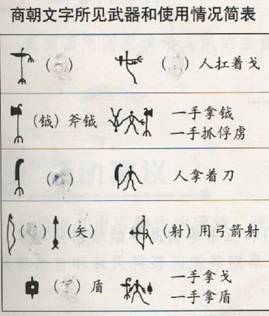 商朝文字所见武器和使用情况简表
( ) ( ) 人扛着戈
(钺) 斧钺 一手拿钺
一手抓俘虏
( ) 人拿着刀
( ) (矢) (射) 用弓箭射
( ) 盾 一手拿戈
一手拿盾